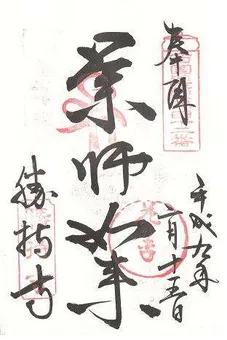 奉拝
平成九年
六月十五日
薬師如来
勝持寺